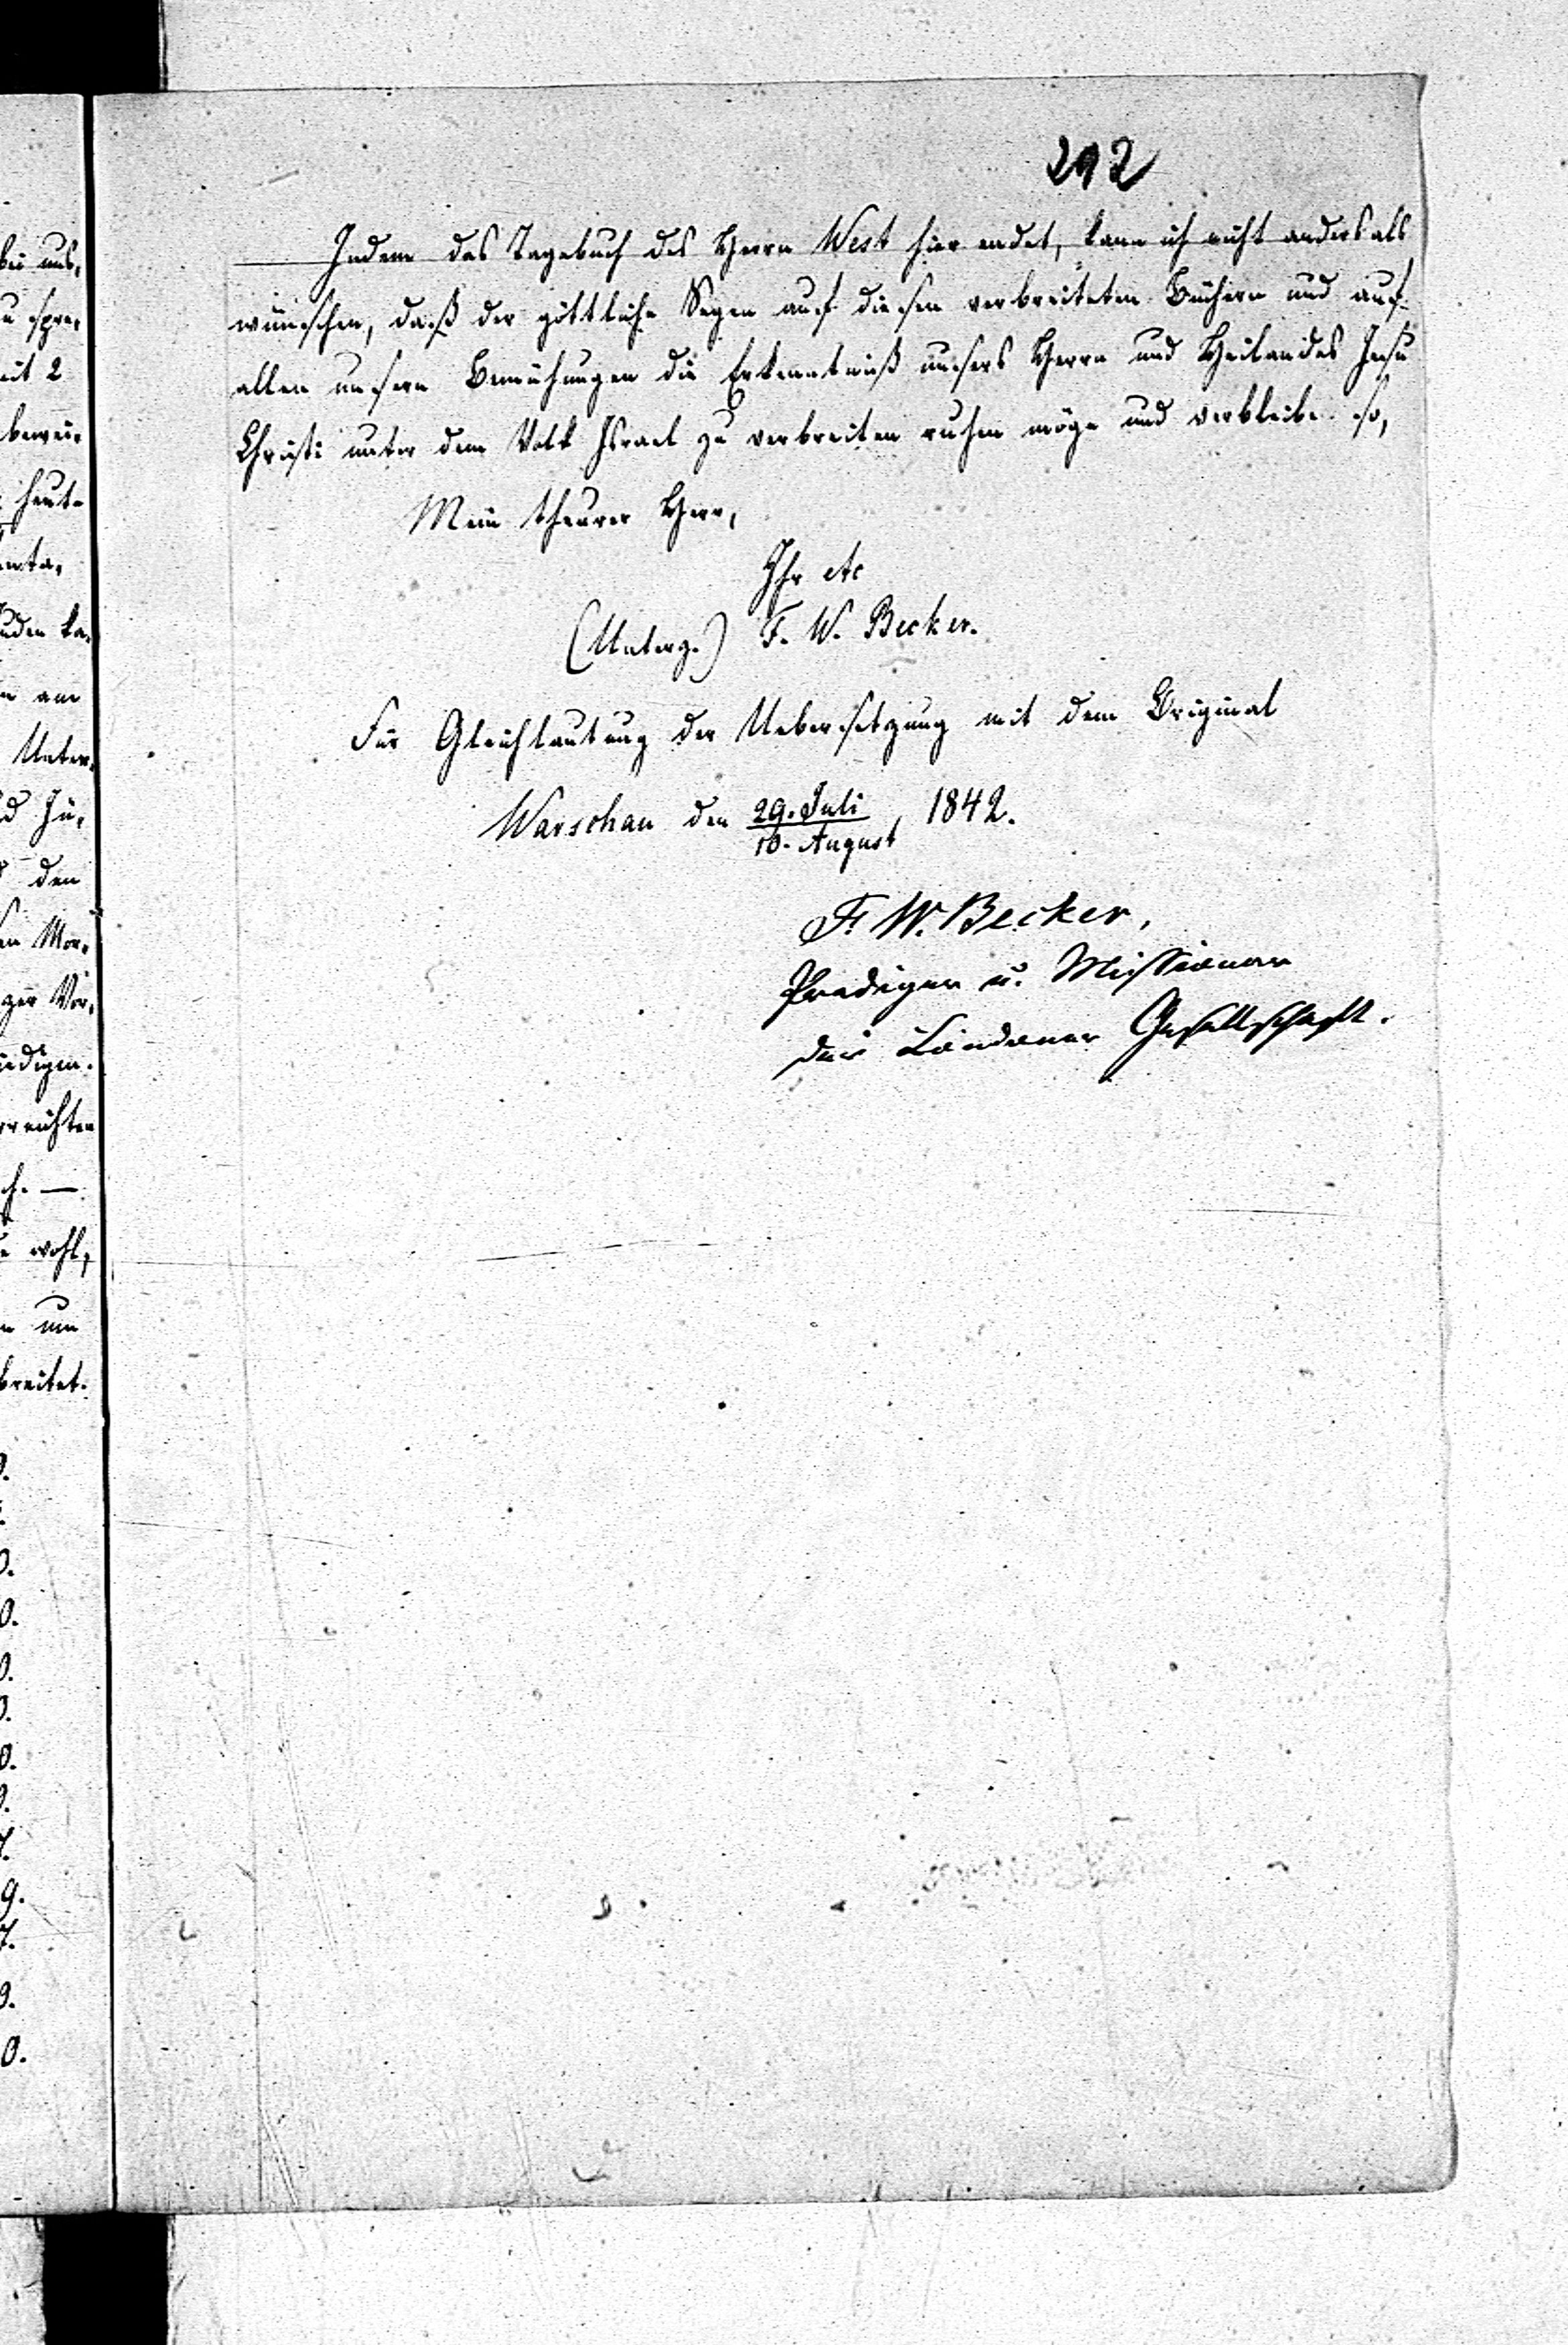 292
Indem das Tagebuch des Herrn West hier endet, kann ich nicht anders als
wünschen, daß der göttliche Segen auf diesen verbreiteten Büchern und auf
allen unsern Bemühungen die Erkenntniß unsers Herrn und Heilandes Jesu
Christi unter dem Volk Israel zu verbreiten ruhen möge und verbleibe so,
Mein theurer Herr,
Ihr etc
(Unterz.) F. W. Becker.
Für Gleichlautung der Uebersetzung mit dem Original
Warschau den 29. Juli / 10. August, 1842.
F. W. Becker,
Prediger u. Missionar
der Londoner Gesellschaft.
bei uns,
zu spre,
mit 2
bewei,
heute
Juden ka,
am
Unter,
den
Mor,
Vor,
digen.
wohl,
um
breitet.